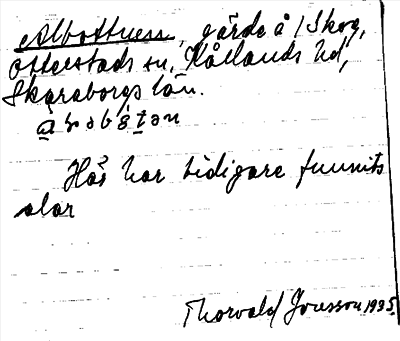 Albotteren, gärde å 1 Skog,
Otterstads sn, Kållands hd,
Skaraborgs län.
Här har tidigare funnits
alar
Thorvald Jonsson 1935